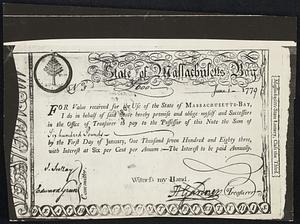 State of Massachusetts Bay
FOR Value received for the Use of the State of MASSACHUSETTS-BAY,
I do in behalf of said State hereby promise and oblige myself and Successors
in the Office of Treasurer to pay to the Possessor of this Note the Sum of
Six hundred Pounds
by the First Day of January, One Thousand seven Hundred and Eighty three,
with Interest at Six per Cent per Annum:—The Interest to be paid Annually.
Witness my Hand.
Committee.
H Gardner (Treasurer)